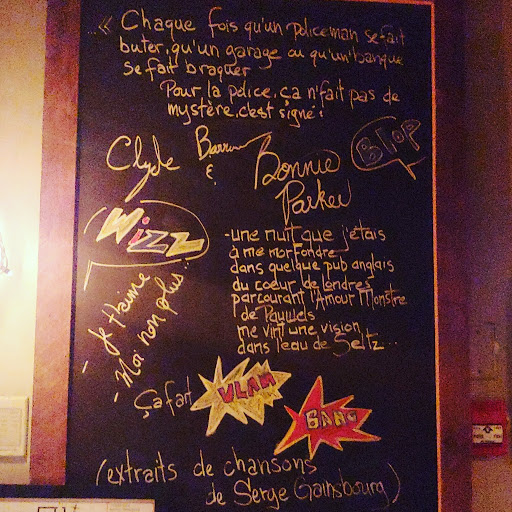 ...« Chaque fois qu'un policeman se fait
buter, qu'un garage ou qu'un'banque
se fait braquer
Pour la police, ça n'fait pas de
mystère, c'est signé :
Clyde Barrow
&
Bonnie
Parker
BLOP
WIZZ
- Je t'aime
- Moi non plus...
- une nuit que j'étais
à me morfondre
dans quelque pub anglais
du coeur de londres
parcourant l'Amour Monstre
de Pauwels
me vint une vision
dans l'eau de Seltz...
Ça fait VLAM
BANG
(extraits de chansons
de Serge Gainsbourg)